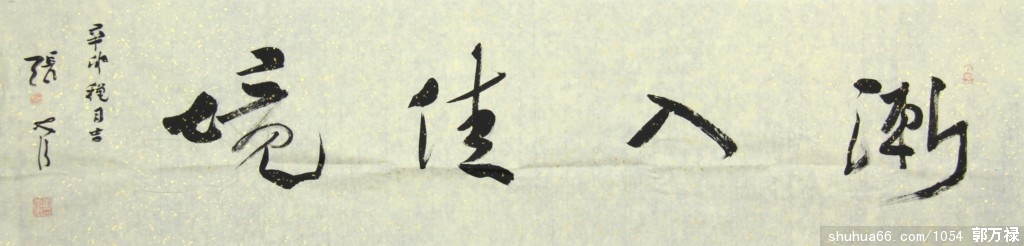 漸入佳境
辛卯穐月吉
張
shuhua66.com/1054 郭万禄